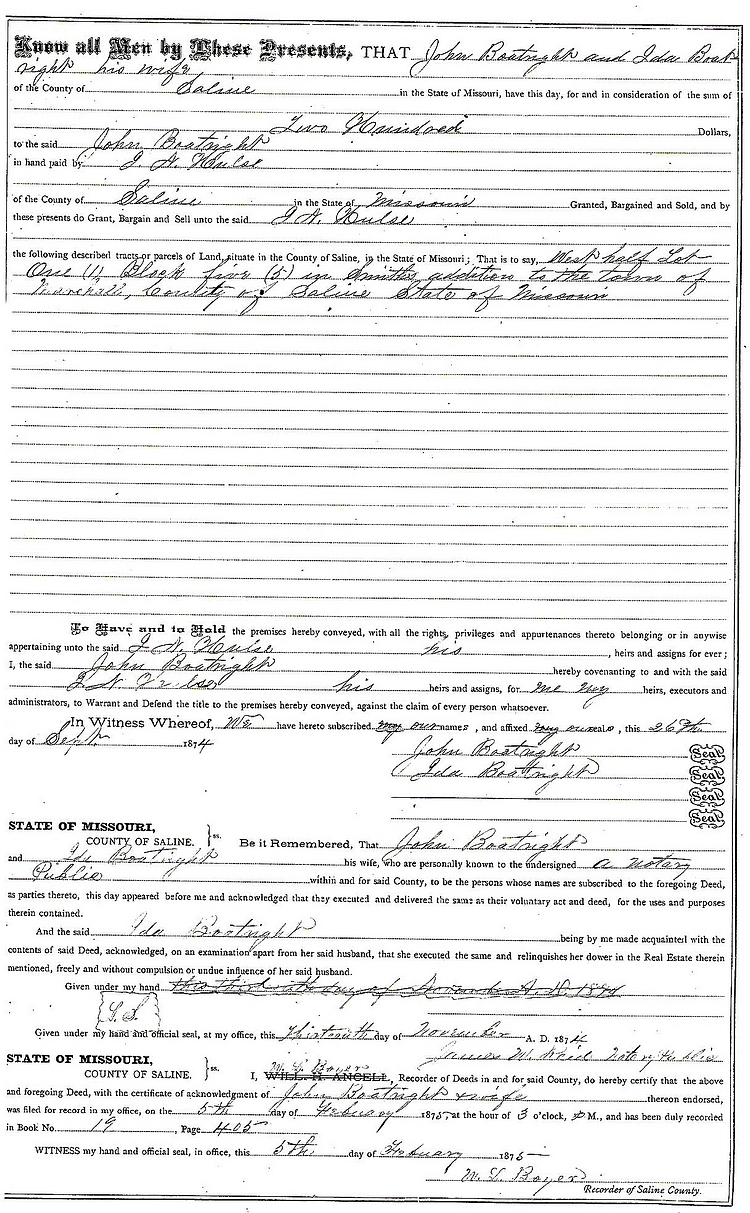 Know all Men by These Presents, THAT John Boatright and Ida Boat-
right his wife
of the County of Saline in the State of Missouri, have this day, for and in consideration of the sum of
Two Hundred Dollars,
to the said John Boatright
in hand paid by J. N. Hulse
of the County of Saline in the State of Missouri Granted, Bargained and Sold, and by
these presents do Grant, Bargain and Sell unto the said J N. Hulse
the following described tracts or parcels of Land, situate in the County of Saline, in the State of Missouri; That is to say, West half Lot
One (1) Block five (5) in Smiths addition to the town of
Marshall, County of Saline State of Missouri
To Have and to Hold the premises hereby conveyed, with all the rights, privileges and appurtenances thereto belonging or in anywise
appertaining unto the said J N. Hulse his , heirs and assigns for ever;
I, the said John Boatright hereby covenanting to and with the said
J. N. Hulse his heirs and assigns, for me my heirs, executors and
administrators, to Warrant and Defend the title to the premises hereby conveyed, against the claim of every person whatsoever.
In Witness Whereof, We have hereto subscribed my our names , and affixed my our seals , this 26th
day of Sept. 1874
John Boatright Seal
Ida Boatright Seal
Seal
Seal
STATE OF MISSOURI,
COUNTY OF SALINE. } ss. Be it Remembered, That John Boatright
and Ida Boatright his wife, who are personally known to the undersigned a notary
Public within and for said County, to be the persons whose names are subscribed to the foregoing Deed,
as parties thereto, this day appeared before me and acknowledged that they executed and delivered the same as their voluntary act and deed, for the uses and purposes
therein contained.
And the said Ida Boatright being by me made acquainted with the
contents of said Deed, acknowledged, on an examination apart from her said husband, that she executed the same and relinquishes her dower in the Real Estate therein
mentioned, freely and without compulsion or undue influence of her said husband.
Given under my hand this day of November A. D. 1874
{L. S.}
Given under my hand and official seal, at my office, this Thirteenth day of November A. D. 1874
James W. Reid Notary Public
STATE OF MISSOURI,
COUNTY OF SALINE. } ss. W. L. Boyer
I, WILL. H. ANCELL, Recorder of Deeds in and for said County, do hereby certify that the above
and foregoing Deed, with the certificate of acknowledgment of John Boatright & wife thereon endorsed,
was filed for record in my office, on the 5th day of February 1875 at the hour of 3 o'clock, P M., and has been duly recorded
in Book No. 19 , Page 405
WITNESS my hand and official seal, in office, this 5th day of February 1875
W. L. Boyer
Recorder of Saline County.